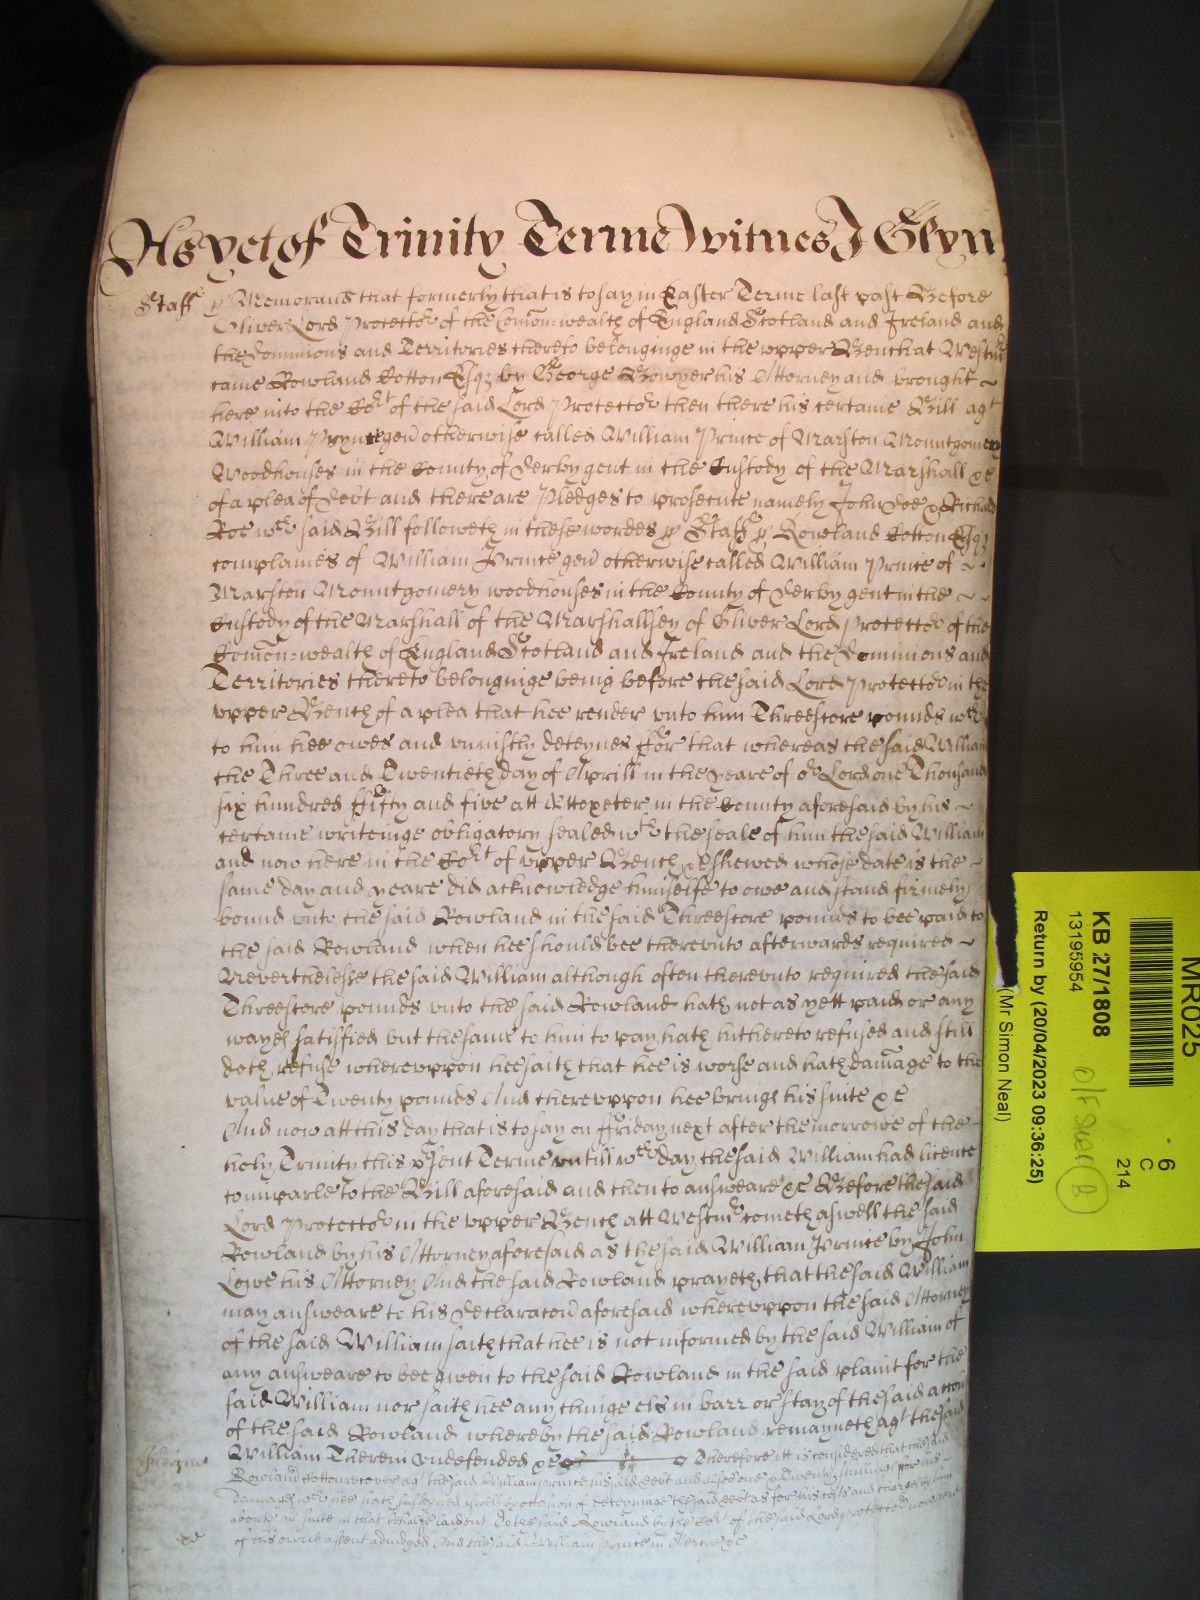 As yet of Trinity Terme Witnes J Glyn
Staff ss Memorand that formerly that is to say in Easter Terme last past Before
Oliver Lord Protector of the Comon:wealth of England Scotland and Ireland and
the Dominions and Territories thereto belonginge in the upper Bench at Westmr
came Rowland Cotton Esqr by George Bowyer his Attorney and brought
here into the Cort of the said Lord Protector then there his certaine Bill agt
William Prynce gen otherwise called William Prince of Marston Mountgomery
Woodhouses in the County of Derby gent in the Custody of the Marshall &c
of a plea of debt and there are Pledges to prosecute namely John Doe & Richard
Roe wch said Bill followeth in these wordes ss Staff ss Rowland Cotton Esqr
complaines of William Prince gen otherwise called William Prince of
Marston Mountgomery woodhouses in the County of Derby gent in the
Custody of the Marshall of the Marshallsey of Oliver Lord Protector of the
Comon:wealth of England Scotland and Ireland and the Dominions and
Territories thereto belonginge being before the said Lord Protector in the
upper Bench of a plea that hee render unto him Threescore pounds wch
to him hee owes and uniustly deteynes ffor that whereas the said William
the Three and Twentieth day of Aprill in the yeare of or Lord one Thousand
six hundred ffifty and five att Uttoxeter in the County aforesaid by his
certaine writeinge obligatory sealed wth the seale of him the said William
and now here in the Cort of upper Bench shewed whose date is the
same day and yeare did acknowledge himselfe to owe and stand firmely
bound unto the said Rowland in the said Threescore pounds to bee paid to
the said Rowland when hee should bee thereunto afterwards required
Neverthelesse the said William although often thereunto required the said
Threescore pounds unto the said Rowland hath not as yett paid or any
wayes satisfied but the same to him to pay hath hithereto refused and still
doth refuse whereuppon hee saith that hee is worse and hath damage to the
value of Twenty pounds And thereuppon hee brings his suite &c
And now att this day that is to say on ffriday next after the morrowe of the
holy Trinity this psent Terme untill wch day the said William had licence
to imparle to the Bill aforesaid and then to answeare &c Before the said
Lord Protector in the upper Bench att Westmr cometh aswell the said
Rowland by his Attorney aforesaid as the said William Prince by John
Lowe his Attorney And the said Rowland prayeth that the said William
may answeare to his Declaracon aforesaid whereuppon the said Attorney
of the said William saith that hee is not informed by the said William of
any answeare to bee given to the said Rowland in the said plaint for the
said William nor saith hee any thinge els in barr or stay of the said accon
of the said Rowland whereby the said Rowland remayneth agt the said
William Therein undefended &c Therefore itt is considered that the said
Judgmt
Rowland Cotton recover agt the said William Prince his said debt and alsoe one & Twenty shillings for his
damages wch hee hath susteyned aswell by occasion of deteyninge the said debt as for his costs and charges by him
aboute his suite in that behalfe laid out to the said Rowland by the Cort of the said Lord protector now here
of his owne assent adiudged And the said William prince in Mercy &c
MR025
6
C
214
KB 27/1808
13195954
Return by (20/04/2023 09:36:25)
(Mr Simon Neal)